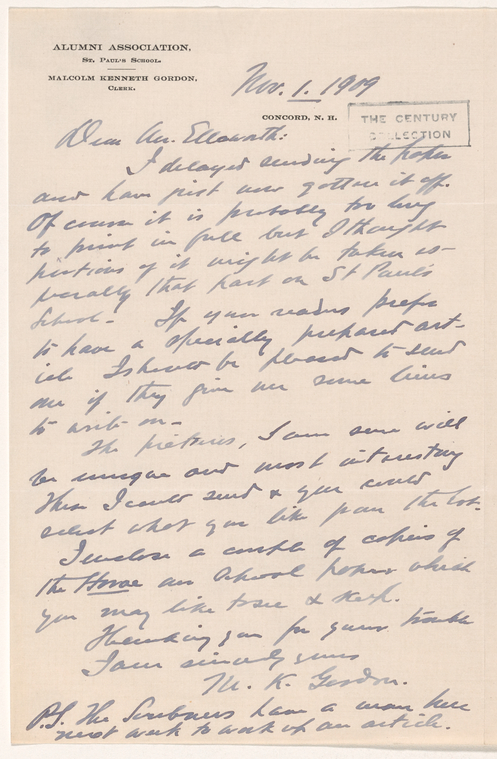 ALUMNI ASSOCIATION,
ST. PAUL'S SCHOOL.
MALCOLM KENNETH GORDON,
CLERK.
Nov. 1. 1909
CONCORD, N. H.
THE CENTURY
COLLECTION
Dear Mr. Ellsworth:
I delayed sending the paper
and have just now gotten it off.
Of course it is probably too long
to print in full but I thought
portions of it might be taken es-
pecially that part on St Pauls
School. If your readers prefer
to have a specially prepared art-
icle I should be pleased to send
one if they give me some lines
to write on.
The pictures, I am sure will
be unique and most interesting
These I could send & you could
select what you like from the lot.
I enclose a couple of copies of
the Horae our School paper which
you may like to see & keep.
Thanking you for your trouble
I am sincerely yours
M. K. Gordon.
P.S. The Scribners have a man here
next week to work up an article.